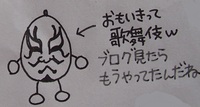 おもいきって
歌舞伎w
ブログ見たら
もうやってたんだね